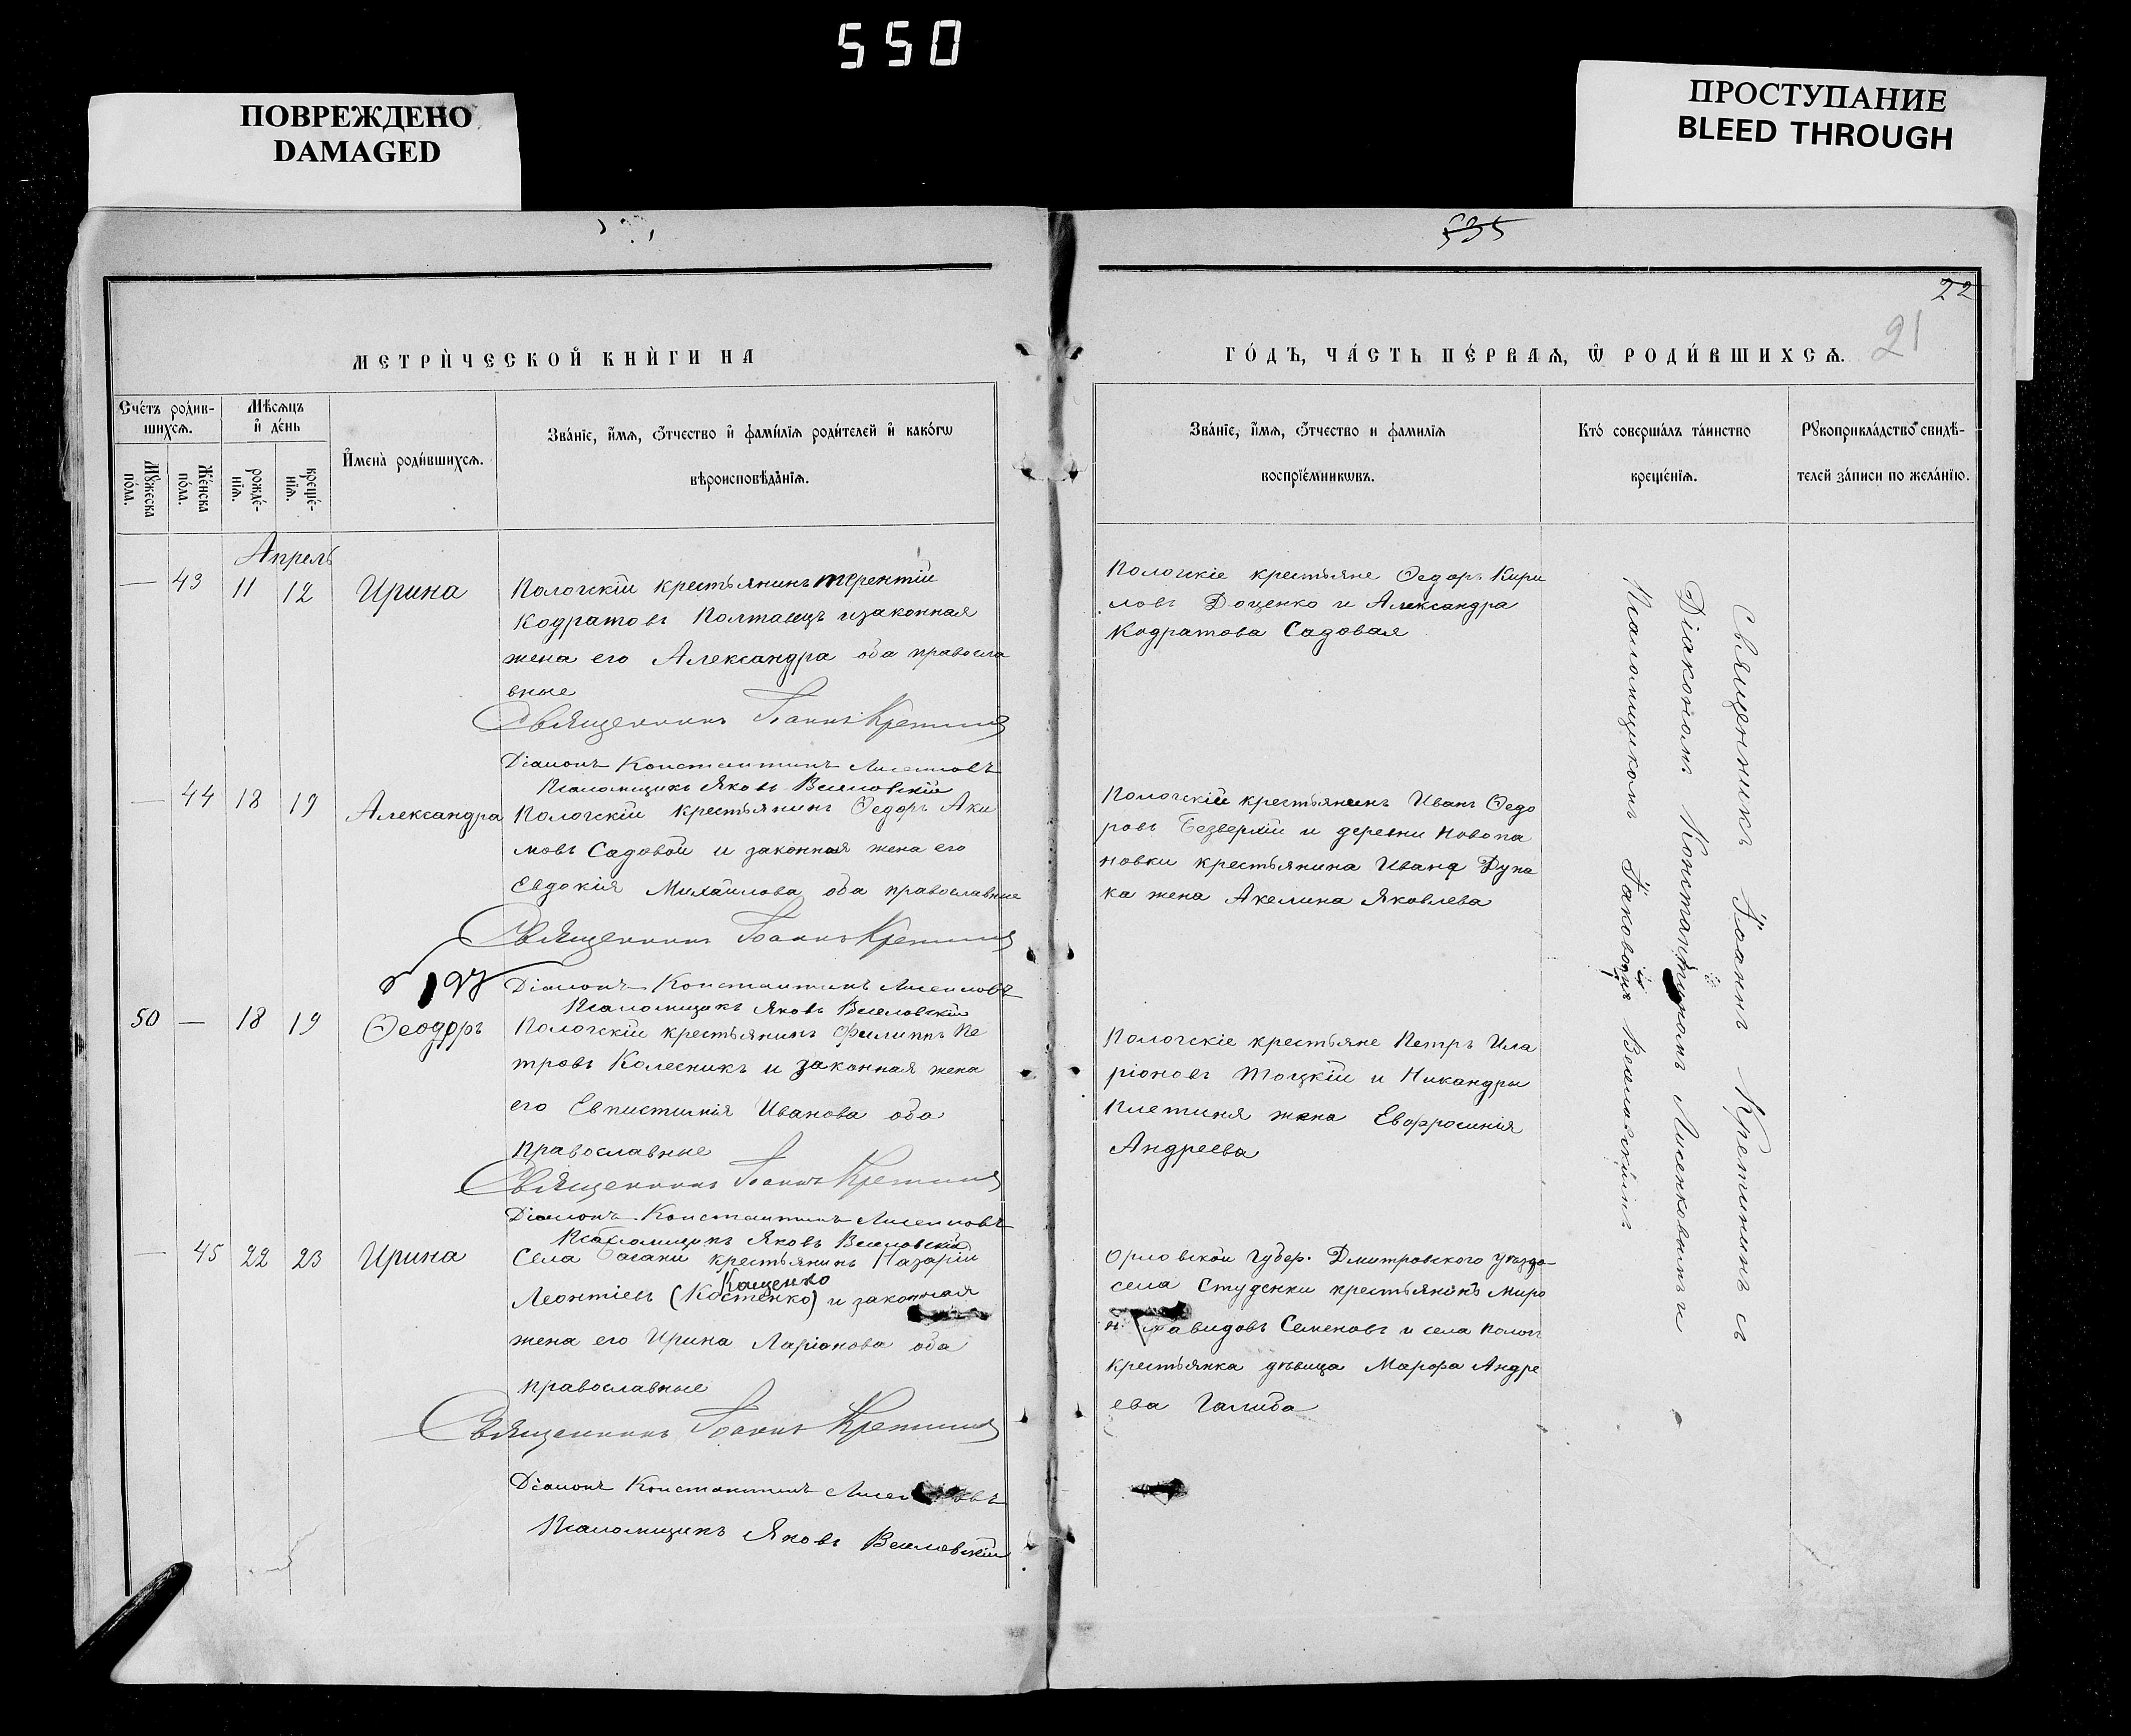 550
ПОВРЕЖДЕНО
DAMAGED
ПРОСТУПАНИЕ
BLEED THROUGH
535
22
21
МЕТРИ́ЧЕСКОЙ КНИ́ГИ НА
ГО́ДЪ, ЧА́СТЬ ПЕ́РВАѦ, Ѿ РОДИ́ВШИХСѦ.
Сче́тъ роди́в-
шихсѧ.
Мꙋ́жеска
по́ла.
Же́нска
по́ла.
Мѣ́сѧцъ
и҆ де́нь
рожде́-
нїѧ.
креще́-
нїѧ.
И҆мена̀ роди́вшихсѧ.
Зва́нїе, и҆́мѧ, ѻ҆́тчество и҆ фами́лїѧ роди́телей и҆ како́гѡ
вѣроисповѣ́данїѧ.
Зва́нїе, и҆́мѧ, ѻ҆́тчество и фами́лїѧ
воспрїе́мникѡвъ.
Кто́ соверша́лъ та́инство
креще́нїѧ.
Рꙋкоприкла́дство свидѣ́-
телей за́писи по жела́нїю.
Апрель
— 43 11 12 Ирина
Пологскій крестьянинъ Терентій
Кодратовъ Полтавецъ и законная
жена его Александра оба правосла
вные
Священникъ Іоаннъ Кретининъ
Діаконъ Константинъ Лисенковъ
Псаломщикъ Яковъ Веселовскій
Пологскіе крестьяне Ѳедоръ Кири
ловъ Доценко и Александра
Кодратова Садовая
Священникъ Іоаннъ Кретининъ съ
Діакономъ Константиномъ Лисенковымъ и
Псаломщикомъ Іаковомъ Веселовскимъ
— 44 18 19 Александра
Пологскій крестьянинъ Ѳедоръ Аки
мовъ Садовой и законная жена его
Евдокія Михайлова оба православные
Священникъ Іоаннъ Кретининъ
Діаконъ Константинъ Лисенковъ
Псаломщикъ Яковъ Веселовскій
Пологскій крестьянинъ Иванъ Ѳедо
ровъ Безверхій и деревни Новопа
новки крестьянина Ивана Дупа
ка жена Акелина Яковлева
50 — 18 19 Ѳеодоръ
Пологскій крестьянинъ Филиппъ Пе
тровъ Колесникъ и законная жена
его Евпистимія Иванова оба
Православные
Священникъ Іоаннъ Кретининъ
Діаконъ Константинъ Лисенковъ
Псаломщикъ Яковъ Веселовскій
Пологскіе крестьяне Петръ Ила
ріоновъ Тоцкій и Никандры
Плетиня жена Евфросинія
Андреева
— 45 22 23 Ирина
Села Басани крестьянинъ Назарій
Кащенко
Леонтіевъ (Костенко) и законная
жена его Ирина Ларіонова оба
православные
Священникъ Іоаннъ Кретининъ
Діаконъ Константинъ Лисенковъ
Псаломщикъ Яковъ Веселовскій
Орловской Губер. Дмитровского уѣзда
села Студенки крестьянинъ Миро
нъ Давидовъ Семеновъ и села Пологъ
крестьянка дѣвица Марфа Андре
ева Галиба